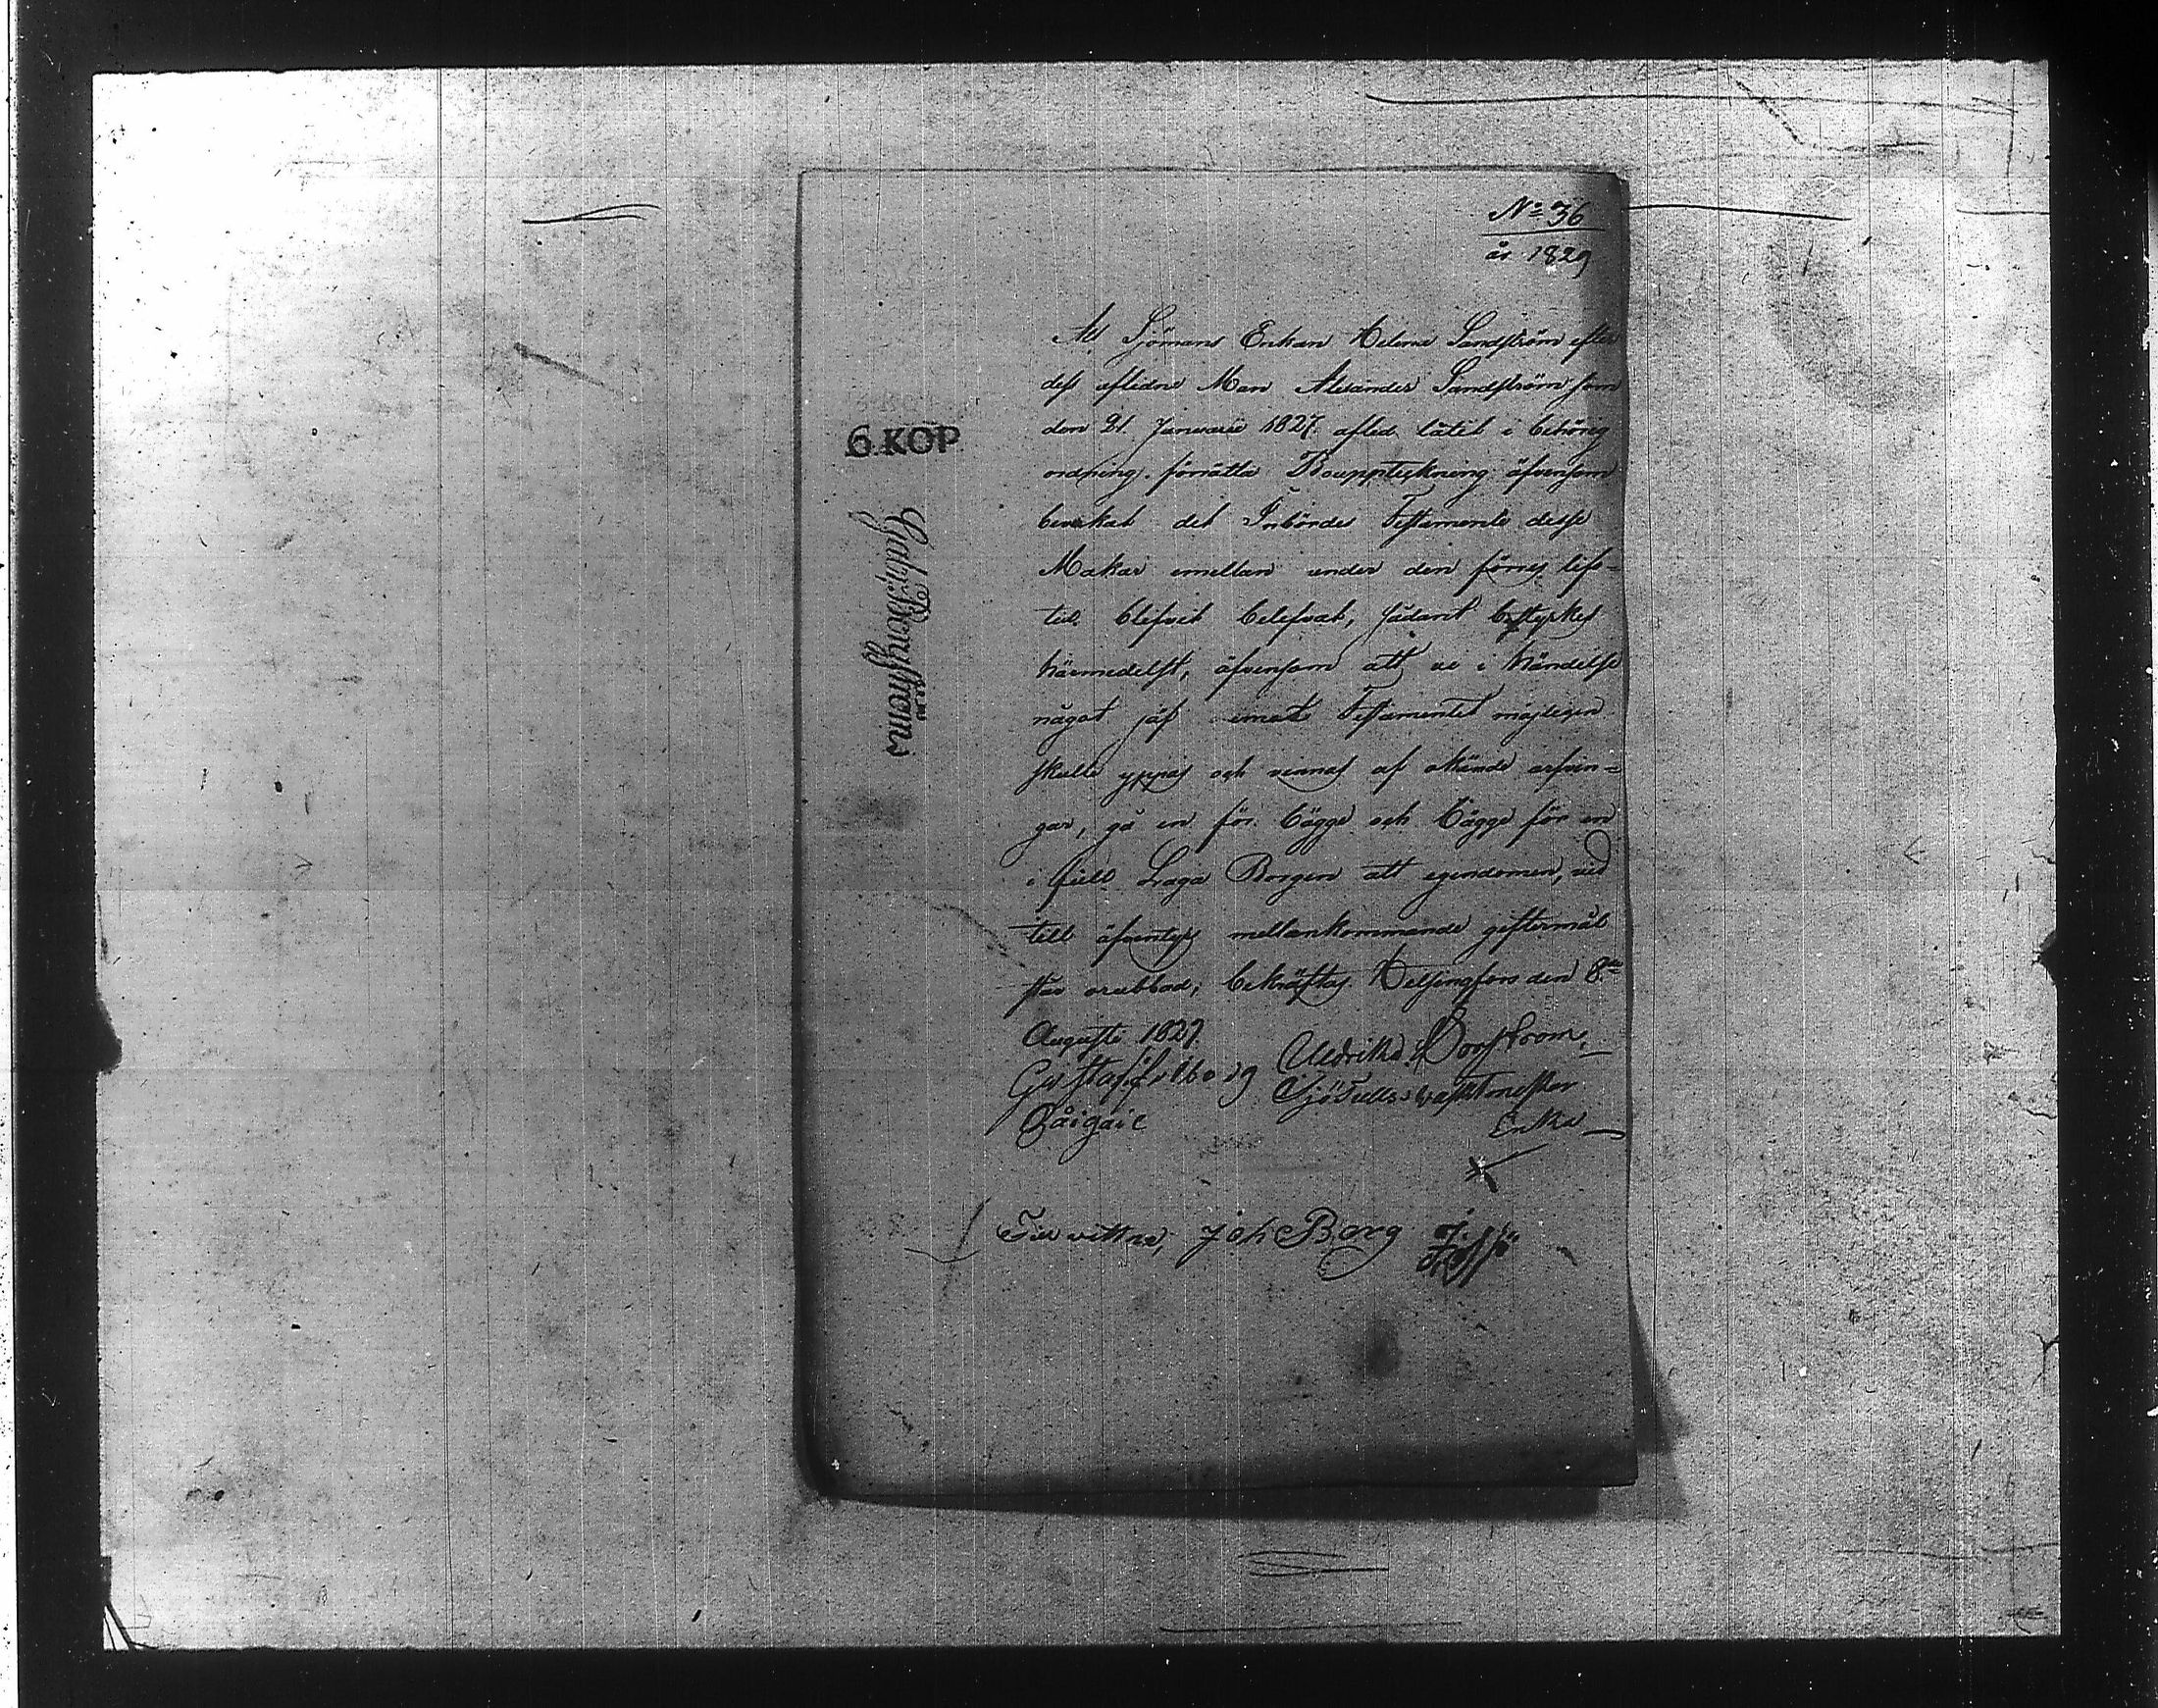 No 36
år 1829
Att Sjömans Enkan Helena Sandström efter
dess aflidne Man Alexander Sandström som
den 21 Januarii 1827 afled låtit i behörig
ordning förrätta Bouppteckning äfvensom
bevakat det Inbördes Testamente desse
Makar emellan under den förres lifs-
tid blifvit belefvat, sådant bestyrkes
härmedelst, äfvensom att vi i händelse
något jäf emot Testamentet möjligen
skulle yppas och vinnas af okände arfvin-
gar, gå en för bägge och bägge för en
i full Laga Borgen att egendomen, vid
till äfventyrs mellankommande giftermål
står orubbad; bekräftas Helsingfors den 8de
Augusti 1829.
Gustaf Silberg
Uldrika Borstrom,
Sjötulls vaktmester
Enka
Till vittne, Joh Borg
6 KOP.